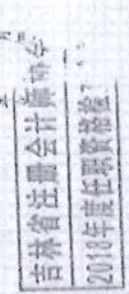 吉林省注册会计师协会
2018年度任职资格检